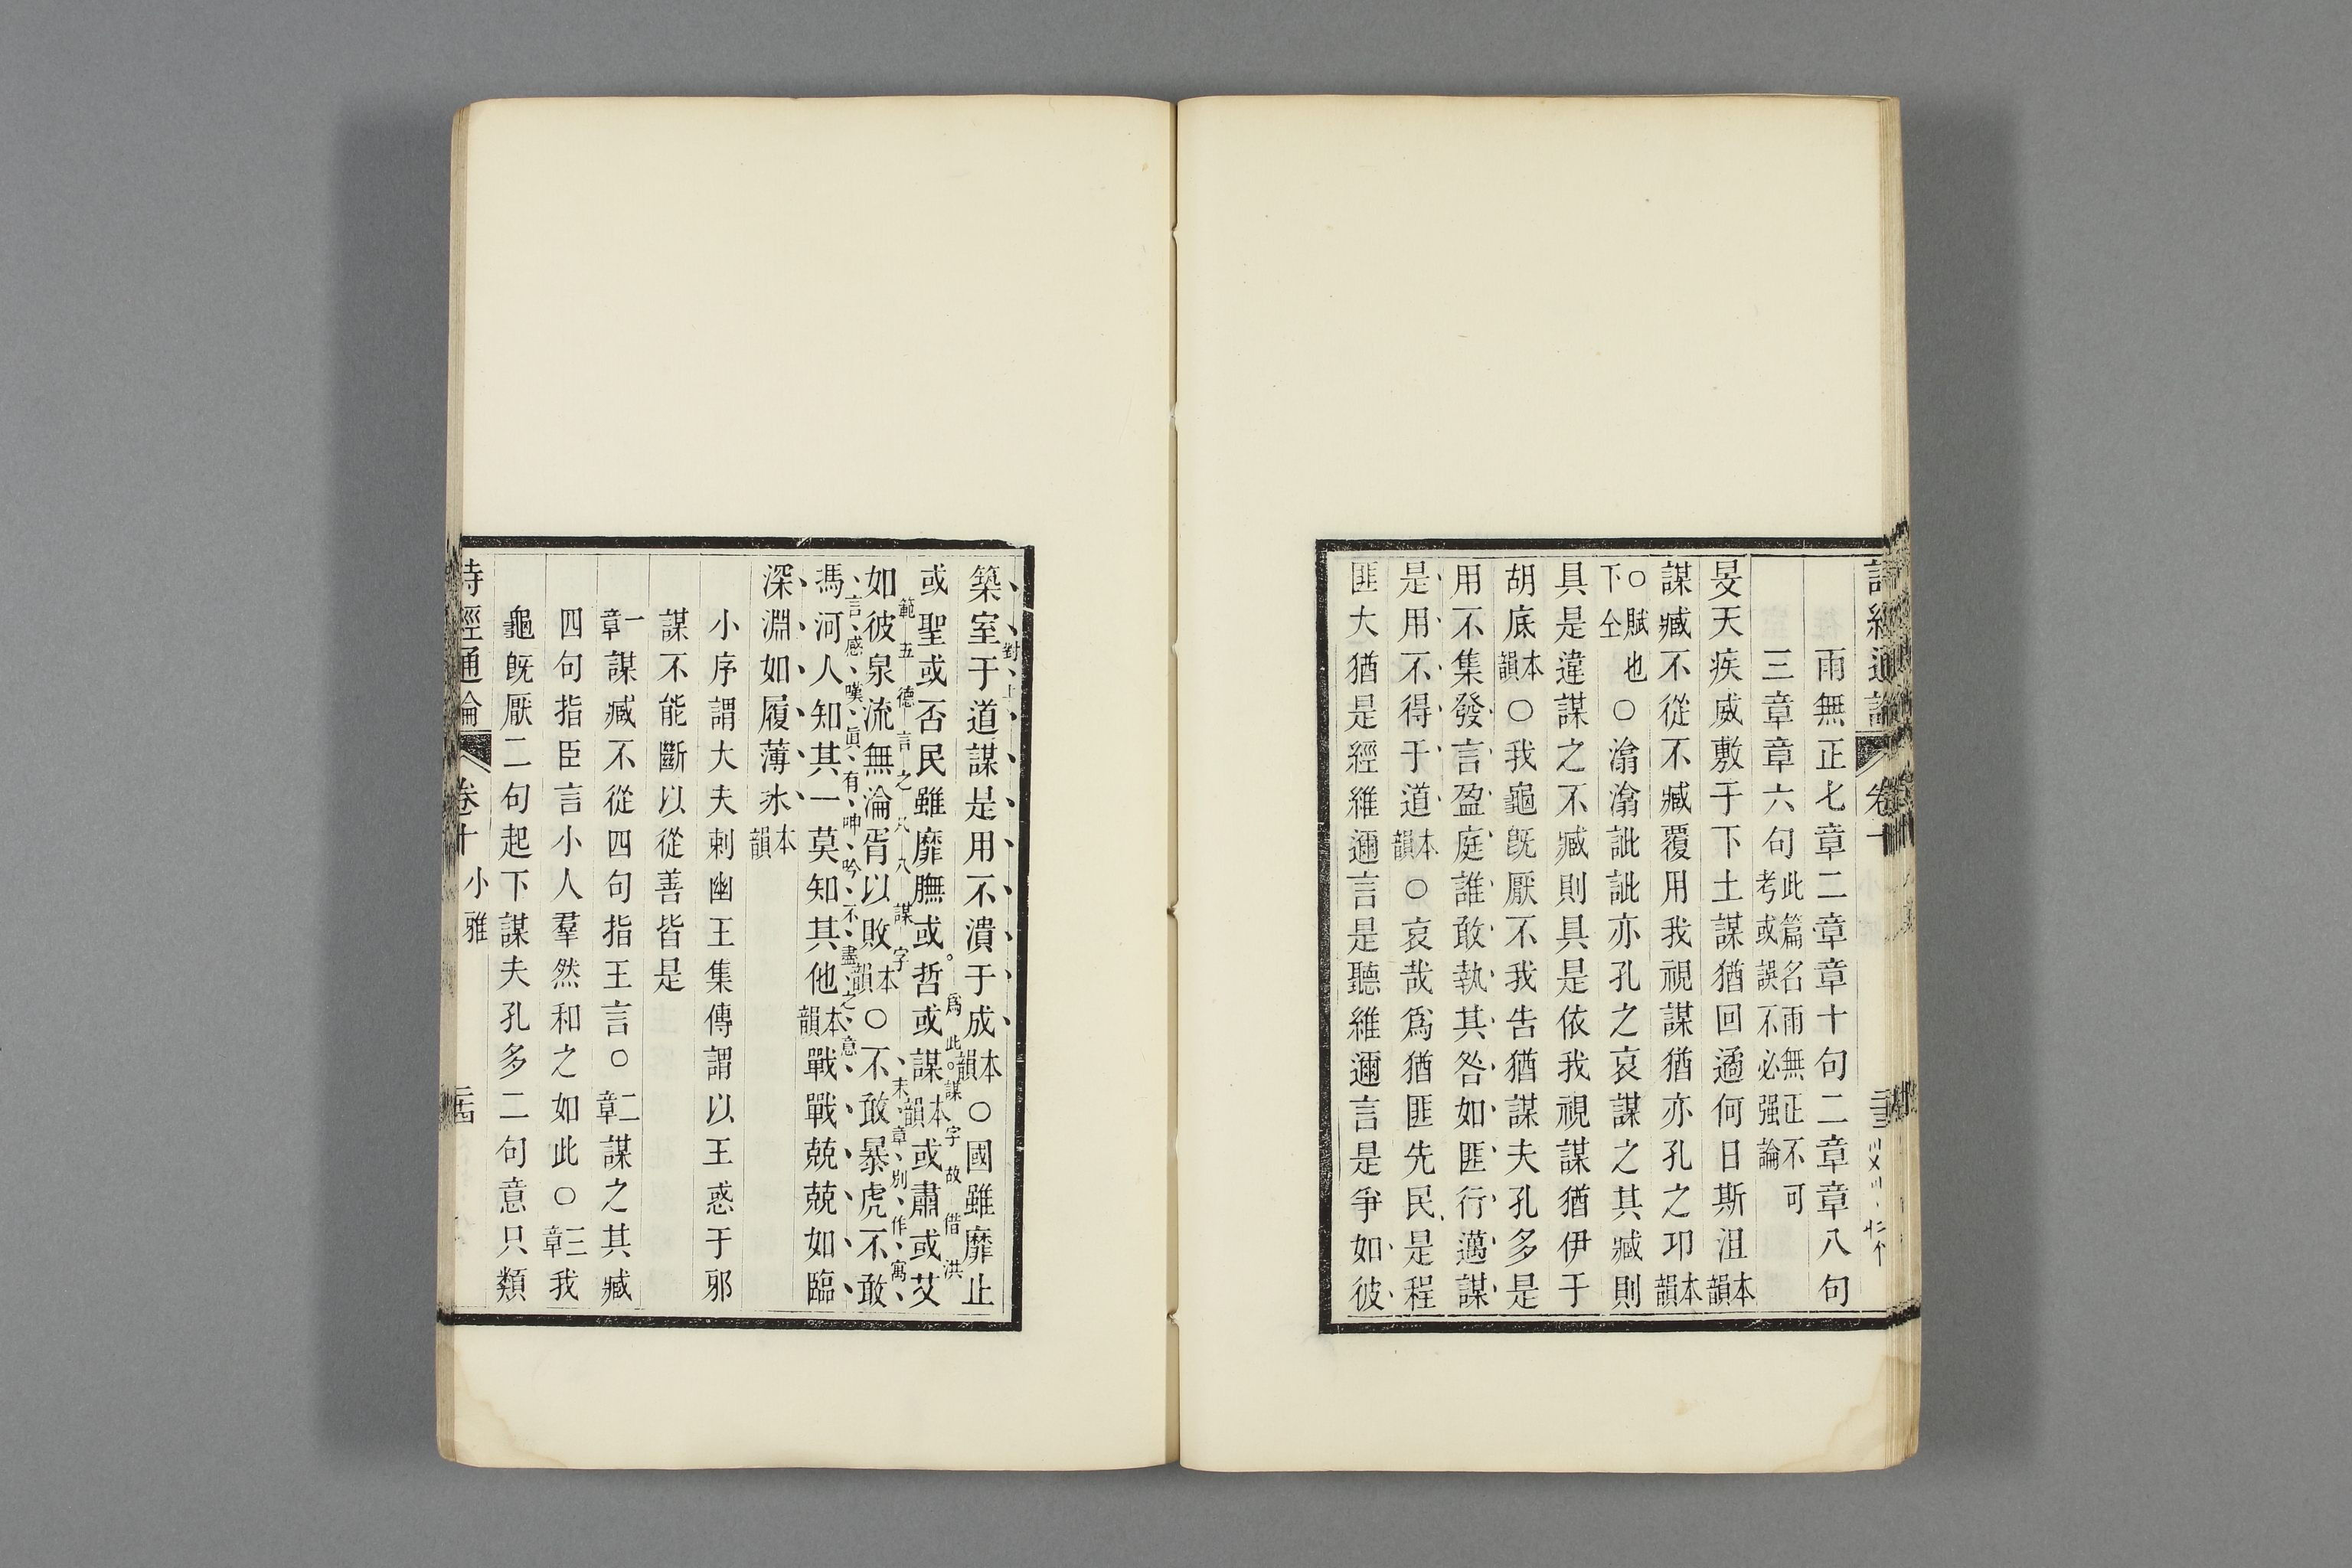 雨無正七章二章章十句二章章八句
三章章六句此篇名雨無正不可考或誤不必强論
旻天疾威敷于下土謀猶回遹何日斯沮本韻
謀臧不從不臧覆用我視謀猶亦孔之邛本韻
○賦也下仝○潝潝訿訿亦孔之哀謀之其臧則
具是違謀之不臧則具是依我視謀猶伊于
胡底本韻○我龜旣厭不我告猶謀夫孔多是
用不集發言盈庭誰敢執其咎如匪行邁謀
是用不得于道本韻○哀哉爲猶匪先民是程
匪大猶是經維邇言是聽維邇言是爭如彼
築室于道謀是用不潰于成本韻○國雖靡止
或聖或否民雖靡膴或哲或謀本韻或肅或艾
爲此謀字故借洪
範五德言之
謀字
如彼泉流無淪胥以敗本韻○不敢暴虎不敢
末章別作寓
言感嘆眞有呻吟不盡之意
馮河人知其一莫知其他本韻戰戰兢兢如臨
深淵如履薄冰本韻
小序謂大夫刺幽王集傳謂以王惑于邪
謀不能斷以從善皆是
一章謀臧不從四句指王言○二章謀之其臧
四句指臣言小人羣然和之如此○三章我
龜旣厭二句起下謀夫孔多二句意只類
詩經通論 卷十 小雅 二十四